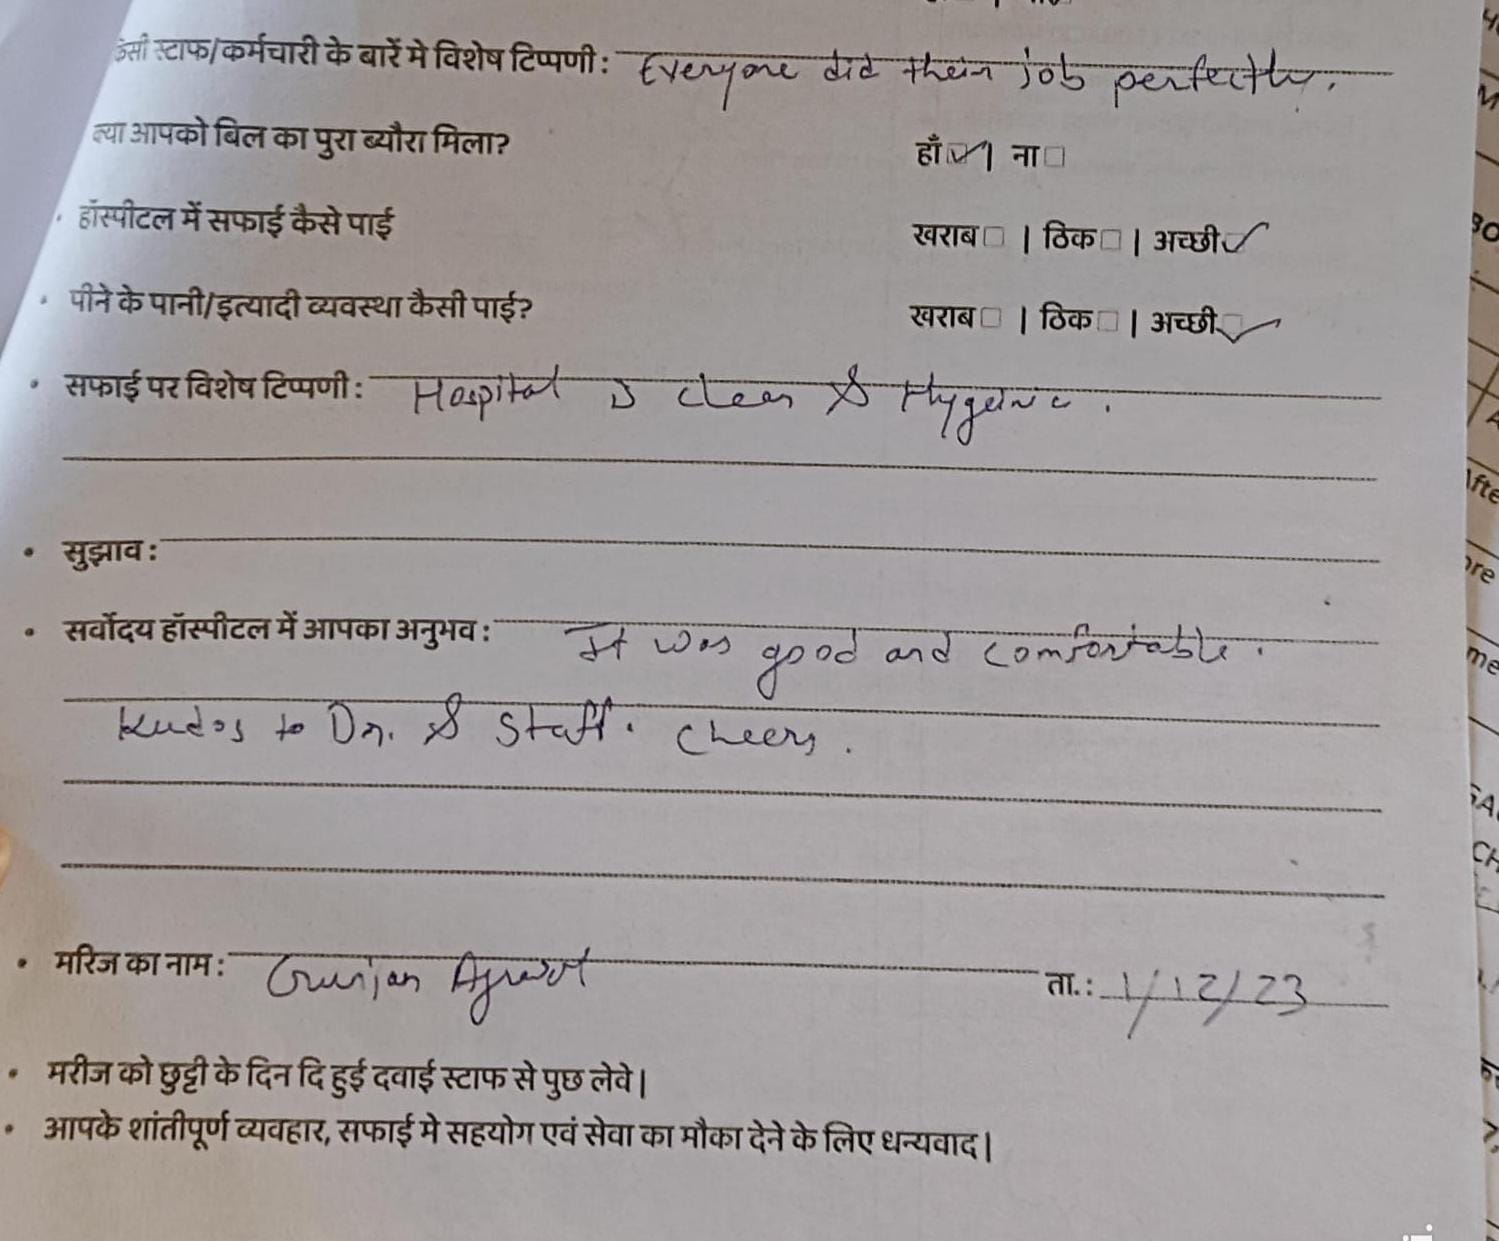 किसी स्टाफ/कर्मचारी के बारें मे विशेष टिप्पणी : Everyone did their job perfectly.
क्या आपको बिल का पुरा ब्यौरा मिला? हाँ ☑ | ना □
• हॉस्पीटल में सफाई कैसे पाई खराब □ | ठिक □ | अच्छी ☑
• पीने के पानी/इत्यादी व्यवस्था कैसी पाई? खराब □ | ठिक □ | अच्छी ☑
• सफाई पर विशेष टिप्पणी : Hospital is clean & Hygeinic.
• सुझाव :
• सर्वोदय हॉस्पीटल में आपका अनुभव : It was good and comfortable.
Kudos to Dr. & Staff. Cheers.
• मरिज का नाम : Gunjan Agrawal ता. : 1/12/23
• मरीज को छुट्टी के दिन दि हुई दवाई स्टाफ से पुछ लेवे |
• आपके शांतीपूर्ण व्यवहार, सफाई मे सहयोग एवं सेवा का मौका देने के लिए धन्यवाद |